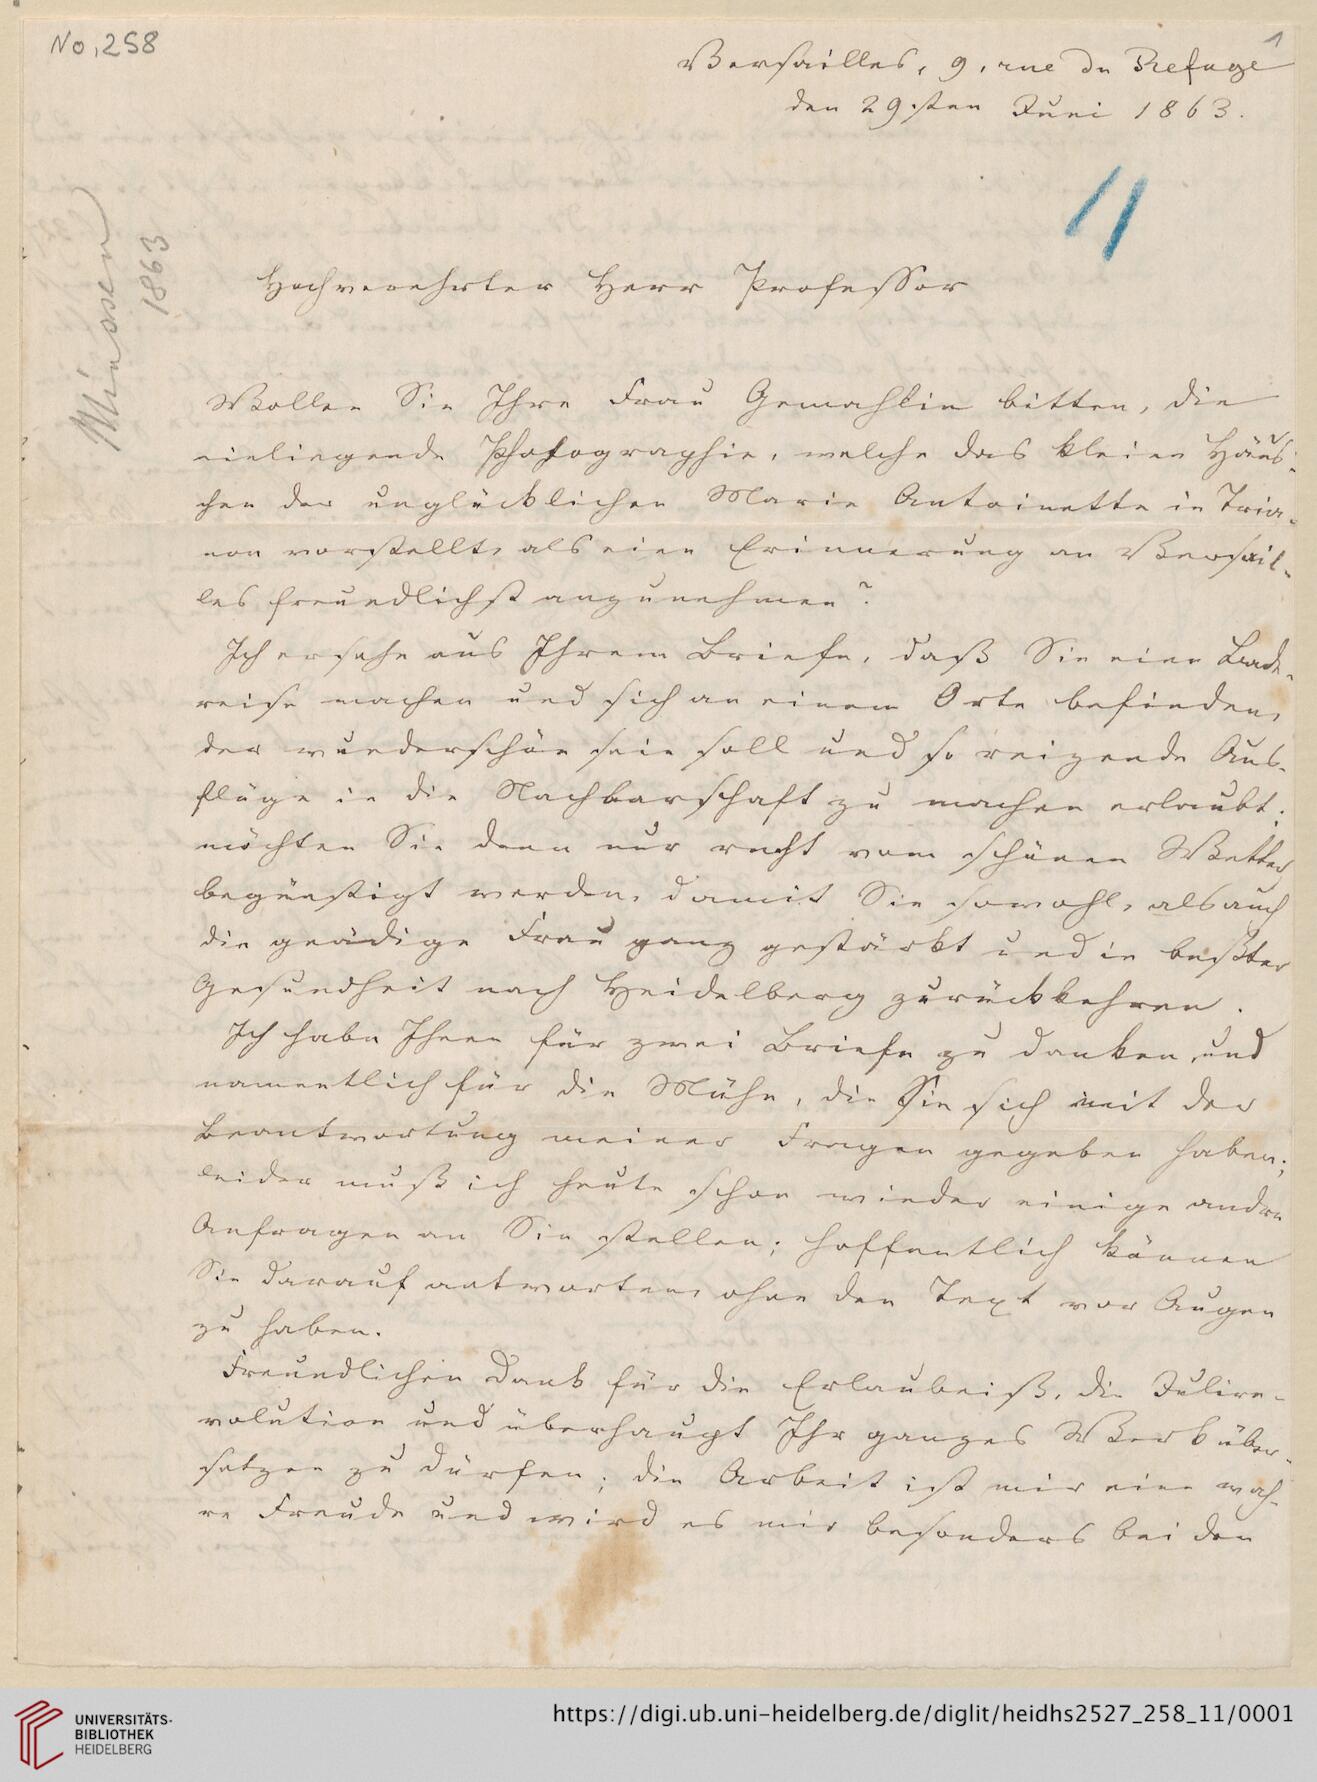 No, 258
1
Versailles, 9, rue du Refuge
den 29sten Juni 1863.
11
Minssen
1863
Hochverehrter Herr Professor
Wollen Sie Ihre Frau Gemahlin bitten, die
einliegende Photographie, welche das kleine Häus-
chen der unglücklichen Marie Antoinette in Tria-
non vorstellt, als eine Erinnerung an Versail-
les freundlichst anzunehmen?
Ich ersehe aus Ihrem Briefe, daß Sie eine Bade-
reise machen und sich an einem Orte befinden,
der wunderschön sein soll und so reizende Aus-
flüge in die Nachbarschaft zu machen erlaubt;
möchten Sie denn nur recht vom schönen Wetter
begünstigt werden, damit Sie sowohl, als auch
die gnädige Frau ganz gestärkt und in beßter
Gesundheit nach Heidelberg zurückkehren.
Ich habe Ihnen für zwei Briefe zu danken, und
namentlich für die Mühe, die Sie sich mit der
Beantwortung meiner Fragen gegeben haben;
leider muß ich heute schon wieder einige andre
Anfragen an Sie stellen; hoffentlich können
Sie darauf antworten, ohne den Text vor Augen
zu haben.
Freundlichen Dank für die Erlaubniß, die Julire-
volution und überhaupt Ihr ganzes Werk über-
setzen zu dürfen; die Arbeit ist mir eine wah-
re Freude und wird es mir besonders bei den
UNIVERSITÄTS-
BIBLIOTHEK
HEIDELBERG
https://digi.ub.uni-heidelberg.de/diglit/heidhs2527_258_11/0001